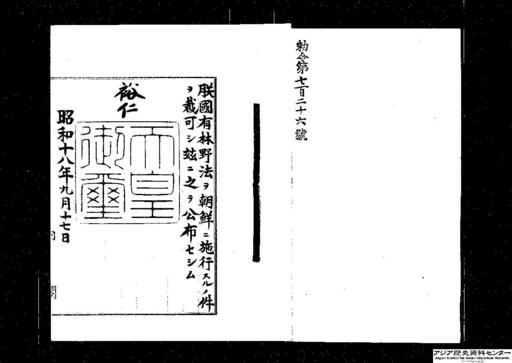 勅令第七百二十六號
朕國有林野法ヲ朝鮮ニ施行スルノ件
ヲ裁可シ玆ニ之ヲ公布セシム
裕仁
天皇
御璽
昭和十八年九月十七日
アジア歴史資料センター
Japan Center for Asian Historical Records